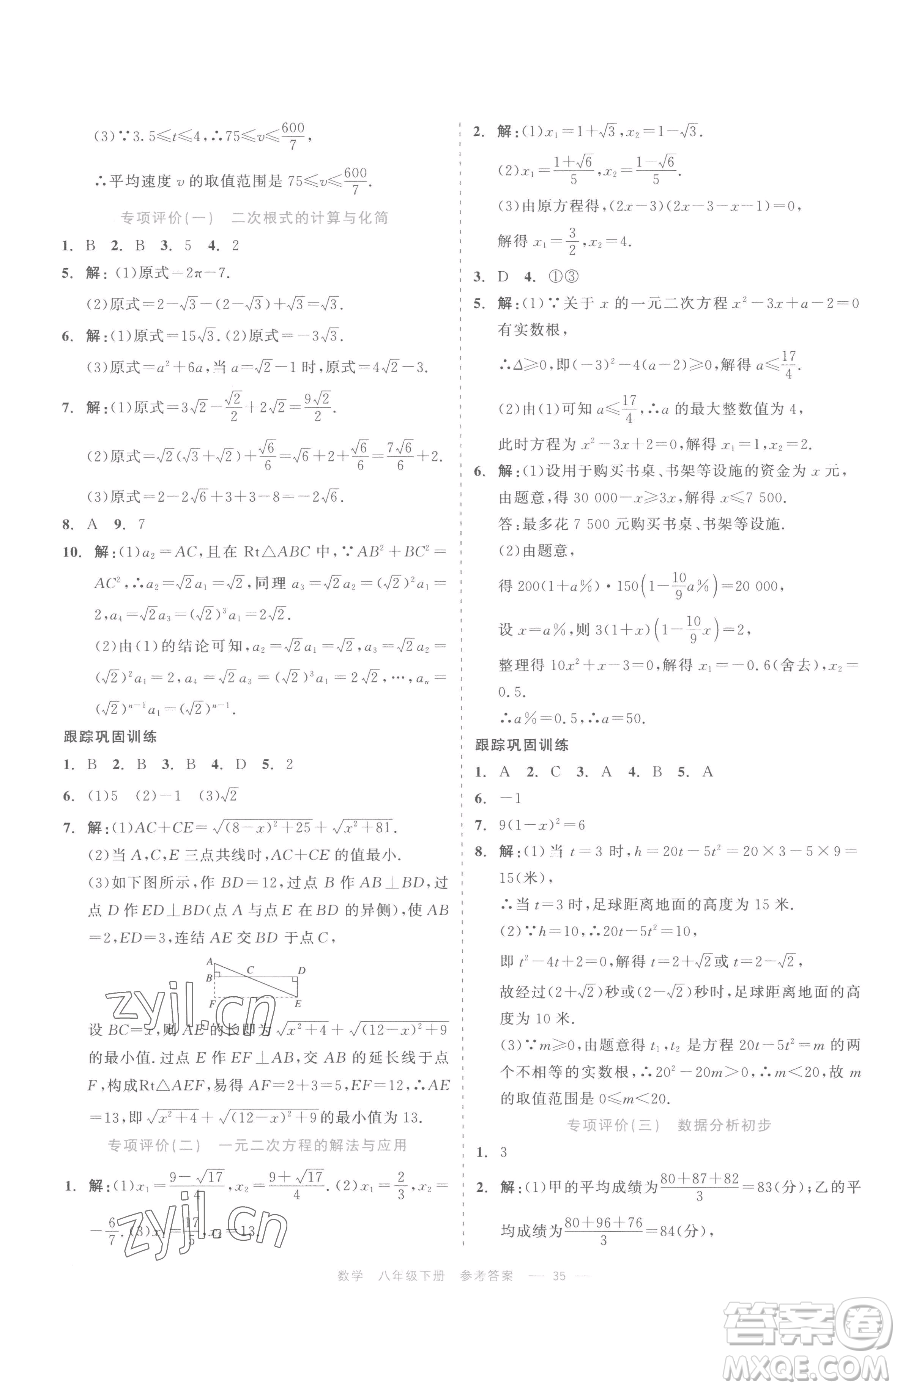 (3)∵3.5≤t≤4,∴75≤v≤600/7,
∴平均速度 v 的取值范围是 75≤v≤600/7.
专项评价(一) 二次根式的计算与化简
1. B 2. B 3. 5 4. 2
5. 解:(1)原式=2π-7.
(2)原式=2-√3-(2-√3)+√3=√3.
6. 解:(1)原式=15√3.(2)原式=-3√3.
(3)原式=a²+6a,当 a=√2-1 时,原式=4√2-3.
7. 解:(1)原式=3√2-√2/2+2√2=9√2/2.
(2)原式=√2(√3+√3)-√6+√6/6=2√6-√6+√6/6=7√6/6.
(3)原式=2-2√6+3+3-8=-2√6.
8. A 9. 7
10. 解:(1)a₂=AC,且在 Rt△ABC 中,∵AB²+BC²=
AC²,∴a₂=√2a₁=√2,同理 a₃=√2a₂=(√2)²a₁=
2,a₄=√2a₃=(√2)³a₁=2√2.
(2)由(1)的结论可知,a₂=√2a₁=√2,a₃=√2a₂=
(√2)²a₁=2,a₄=√2a₃=(√2)³a₁=2√2,…,aₙ=
(√2)ⁿ⁻¹a₁=(√2)ⁿ⁻¹.
跟踪巩固训练
1. B 2. B 3. B 4. D 5. 2
6. (1)5 (2)-1 (3)√2
7. 解:(1)AC+CE=√((8-x)²+25)+√(x²+81).
(2)当 A,C,E 三点共线时,AC+CE 的值最小.
(3)如下图所示,作 BD=12,过点 B 作 AB⊥BD,过
点 D 作 ED⊥BD(点 A 与点 E 在 BD 的异侧),使 AB
=2,ED=3,连结 AE 交 BD 于点 C,
A
B C D
F E
设 BC=x,则 AE 的长即为 √(x²+4)+√((12-x)²+9)
的最小值. 过点 E 作 EF⊥AB,交 AB 的延长线于点
F,构成Rt△AEF,易得 AF=5,EF=12,由勾股定理,得 AE=
13,即 √(x²+4)+√((12-x)²+9) 的最小值为 13.
专项评价(二) 一元二次方程的解法与应用
1. 解:(1)x₁=(9-√17)/4,x₂=(9+√17)/4.(2)x₁=2/3,x₂=
-6/7.(3)x₁=17/5,x₂=13.
数学 八年级下册 参考答案 — 35 —
2. 解:(1)x₁=1+√3,x₂=1-√3.
(2)x₁=(1+√6)/5,x₂=(1-√6)/5.
(3)由原方程得,(2x-3)(2x-3-x-1)=0,
解得 x₁=3/2,x₂=4.
3. D 4. ①③
5. 解:(1)∵关于 x 的一元二次方程 x²-3x+a-2=0
有实数根,
∴Δ≥0,即(-3)²-4(a-2)≥0,解得 a≤17/4.
(2)由(1)可知 a≤17/4,∴a 的最大整数值为 4,
此时方程为 x²-3x+2=0,解得 x₁=1,x₂=2.
6. 解:(1)设用于购买书桌、书架等设施的资金为 x 元,
由题意,得 30 000-x≥3x,解得 x≤7 500.
答:最多花 7 500 元购买书桌、书架等设施.
(2)由题意,
得 200(1+a%)·150(1-10/9a%)=20 000,
设 x=a%,则 3(1+x)(1-10/9x)=2,
整理得 10x²+x-3=0,解得 x₁=-0.6(舍去),x₂=
0.5.
∴a%=0.5,∴a=50.
跟踪巩固训练
1. A 2. C 3. A 4. B 5. A
6. -1
7. 9(1-x)²=6
8. 解:(1)当 t=3 时,h=20t-5t²=20×3-5×9=
15(米),
∴当 t=3 时,足球距离地面的高度为 15 米.
(2)∵h=10,∴20t-5t²=10,
即 t²-4t+2=0,解得 t=2+√2或 t=2-√2,
故经过(2+√2)秒或(2-√2)秒时,足球距离地面的高
度为 10 米.
(3)∵m≥0,由题意得 t₁,t₂ 是方程 20t-5t²=m 的
两个不相等的实数根,∴Δ=20²-20m>0,∴m<20,故 m
的取值范围是 0≤m<20.
专项评价(三) 数据分析初步
1. 3
2. 解:(1)甲的平均成绩为(80+87+82)/3=83(分);乙的平
均成绩为(80+96+76)/3=84(分),
zyjl.cn
zyjl.cn
答案圈
MXQE.COM